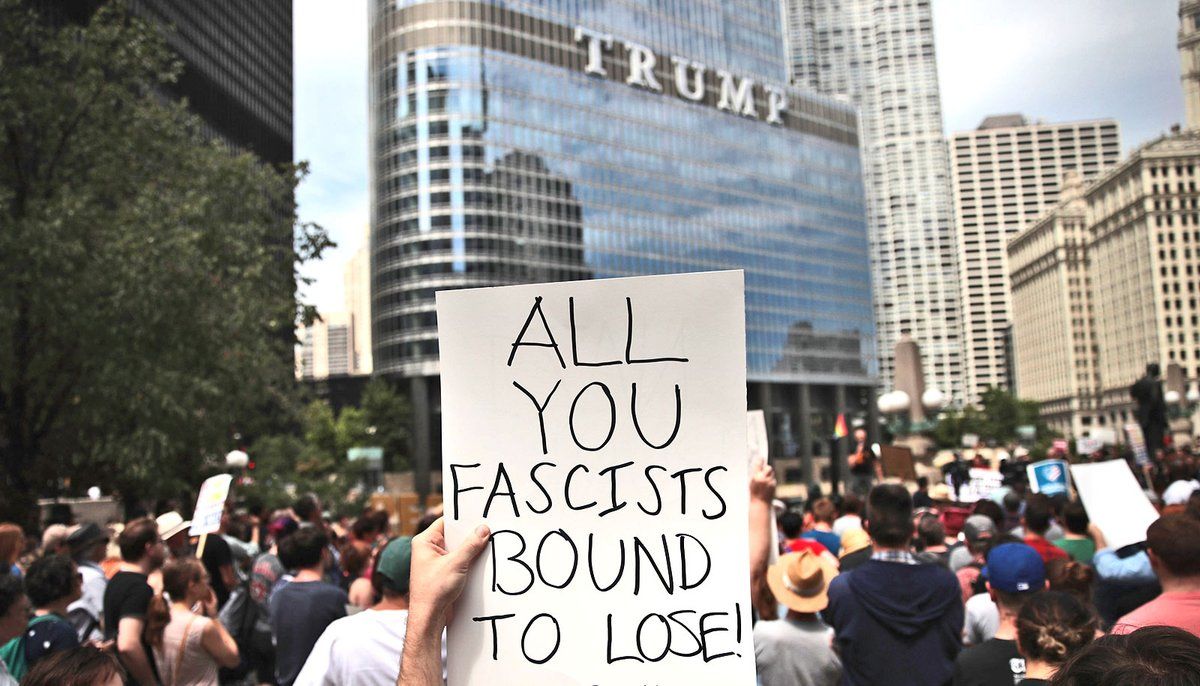 TRUMP
ALL
YOU
FASCISTS
BOUND
TO LOSE!